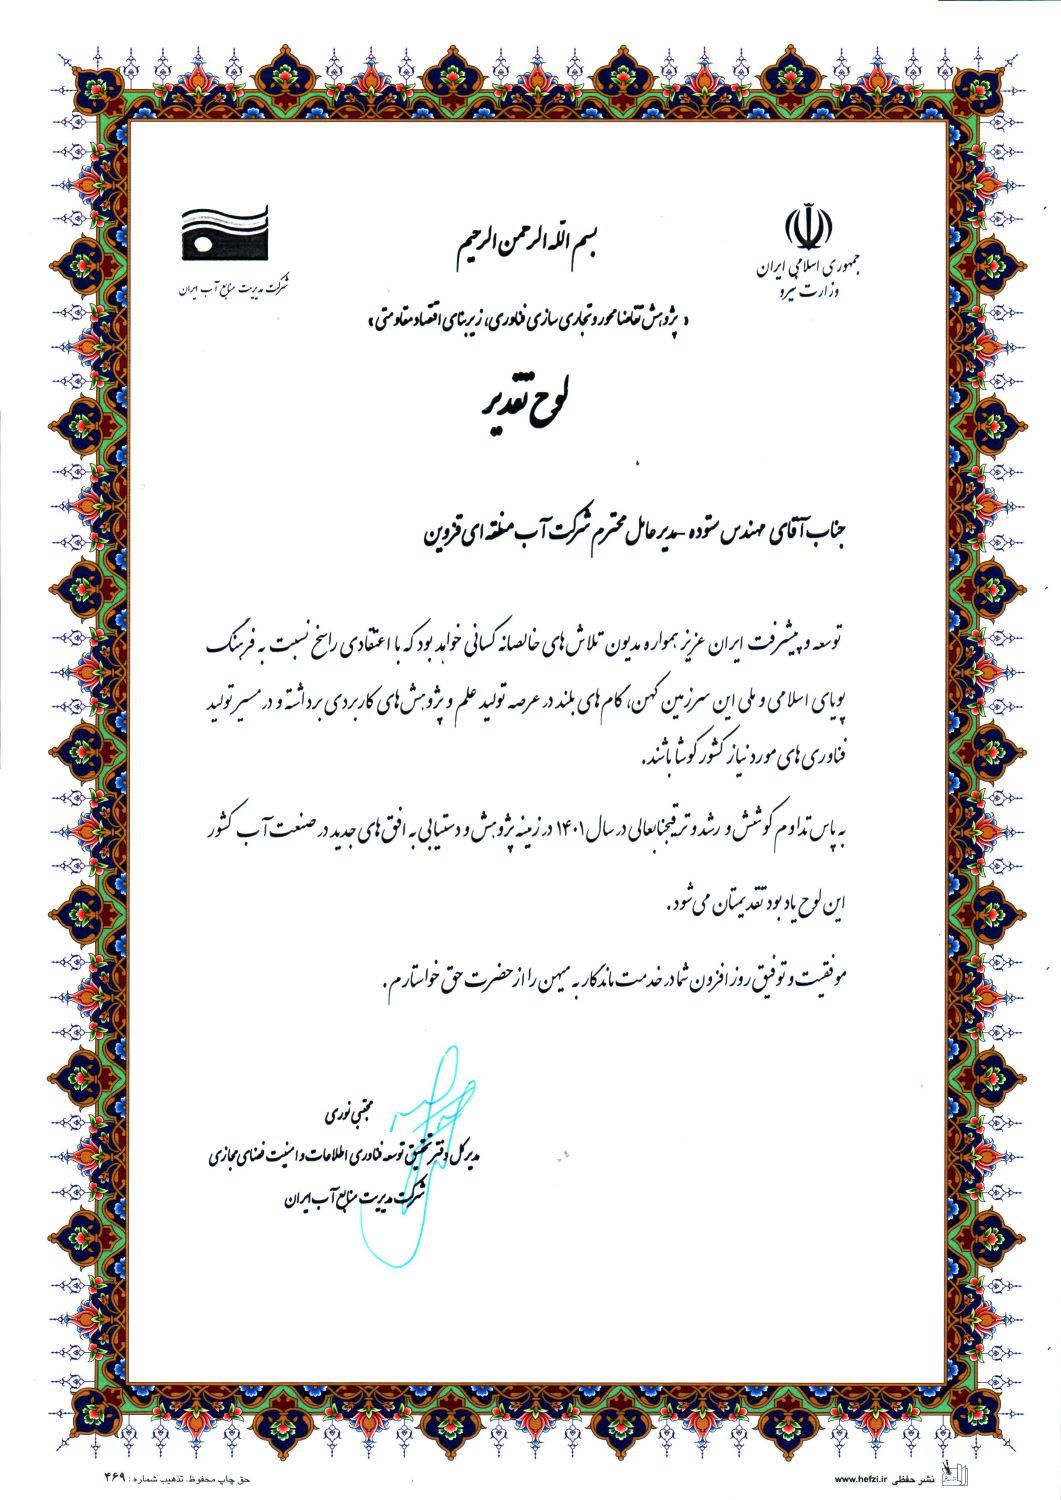 بسم الله الرحمن الرحیم
جمهوری اسلامی ایران
وزارت نیرو
شرکت مدیریت منابع آب ایران
« پژوهش تقاضامحور و تجاری سازی فناوری، زیربنای اقتصاد مقاومتی»
لوح تقدیر
جناب آقای مهندس ستوده - مدیرعامل محترم شرکت آب منطقه ای قزوین
توسعه و پیشرفت ایران عزیز همواره مدیون تلاش های خالصانه کسانی خواهد بود که با اعتقادی راسخ نسبت به فرهنگ
پویای اسلامی و ملی این سرزمین کهن، کام های بلند در عرصه تولید علم و پژوهش های کاربردی برداشته و در مسیر تولید
فناوری های مورد نیاز کشور کوشا باشند.
به پاس تداوم کوشش و رشد و ترقیجنابعالی در سال ۱۴۰۱ در زمینه پژوهش و دستیابی به افق های جدید در صنعت آب کشور
این لوح یادبود تقدیمتان می شود .
موفقیت و توفیق روز افزون شما در خدمت ماندگار به میهن را از حضرت حق خواستارم.
مجتبی نوری
مدیرکل دفتر تحقیق توسعه فناوری اطلاعات و امنیت فضای مجازی
شرکت مدیریت منابع آب ایران
نشر حفظی www.hefzi.ir
حق چاپ محفوظ. تذهیب شماره : ۴۶۹